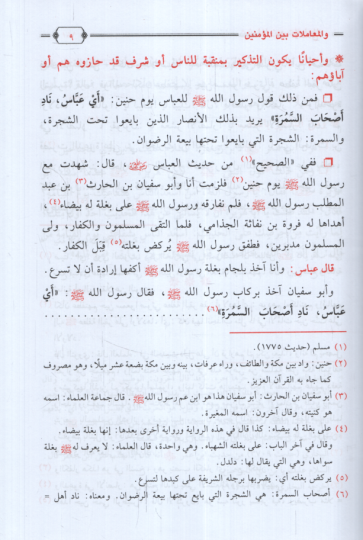 والمعاملات بين المؤمنين
٩
* وأحيانًا يكون التذكير بمنقبة للناس أو شرف قد حازوه هم أو
آباؤهم:
❒ فمن ذلك قول رسول الله ﷺ للعباس يوم حنين: «أَيْ عَبَّاسُ، نَادِ
أَصْحَابَ السَّمُرَةِ» يريد بذلك الأنصار الذين بايعوا تحت الشجرة،
والسمرة: الشجرة التي بايعوا تحتها بيعة الرضوان.
❒ ففي «الصحيح»(١) من حديث العباس، قال: شهدت مع
رسول الله ﷺ يوم حنين(٢) فلزمت أنا وأبو سفيان بن الحارث(٣) بن عبد
المطلب رسول الله ﷺ، فلم نفارقه ورسول الله ﷺ على بغلة له بيضاء(٤)،
أهداها له فروة بن نفاثة الجذامي، فلما التقى المسلمون والكفار، ولى
المسلمون مدبرين، فطفق رسول الله ﷺ يُركض بغلته(٥) قِبَلَ الكفار.
قال عباس: وأنا آخذ بلجام بغلة رسول الله ﷺ أكفها إرادة أن لا تسرع.
وأبو سفيان آخذ بركاب رسول الله ﷺ، فقال رسول الله ﷺ: «أَيْ
عَبَّاسُ، نَادِ أَصْحَابَ السَّمُرَةِ»(٦)........................
(١) مسلم (حديث ١٧٧٥).
(٢) حنين: واد بين مكة والطائف، وراء عرفات، بينه وبين مكة بضعة عشر ميلًا، وهو مصروف
كما جاء به القرآن العزيز.
(٣) أبو سفيان بن الحارث: أبو سفيان هذا هو ابن عم رسول الله ﷺ. قال جماعة العلماء: اسمه
هو كنيته، وقال آخرون: اسمه المغيرة.
(٤) على بغلة له بيضاء: كذا قال في هذه الرواية ورواية أخرى بعدها: إنها بغلة بيضاء.
وقال في آخر الباب: على بغلته الشهباء. وهي واحدة، قال العلماء: لا يعرف له ﷺ بغلة
سواها، وهي التي يقال لها: دلدل.
(٥) يركض بغلته أي: يضربها برجله الشريفة على كبدها لتسرع.
(٦) أصحاب السمرة: هي الشجرة التي بايع تحتها بيعة الرضوان. ومعناه: ناد أهل =